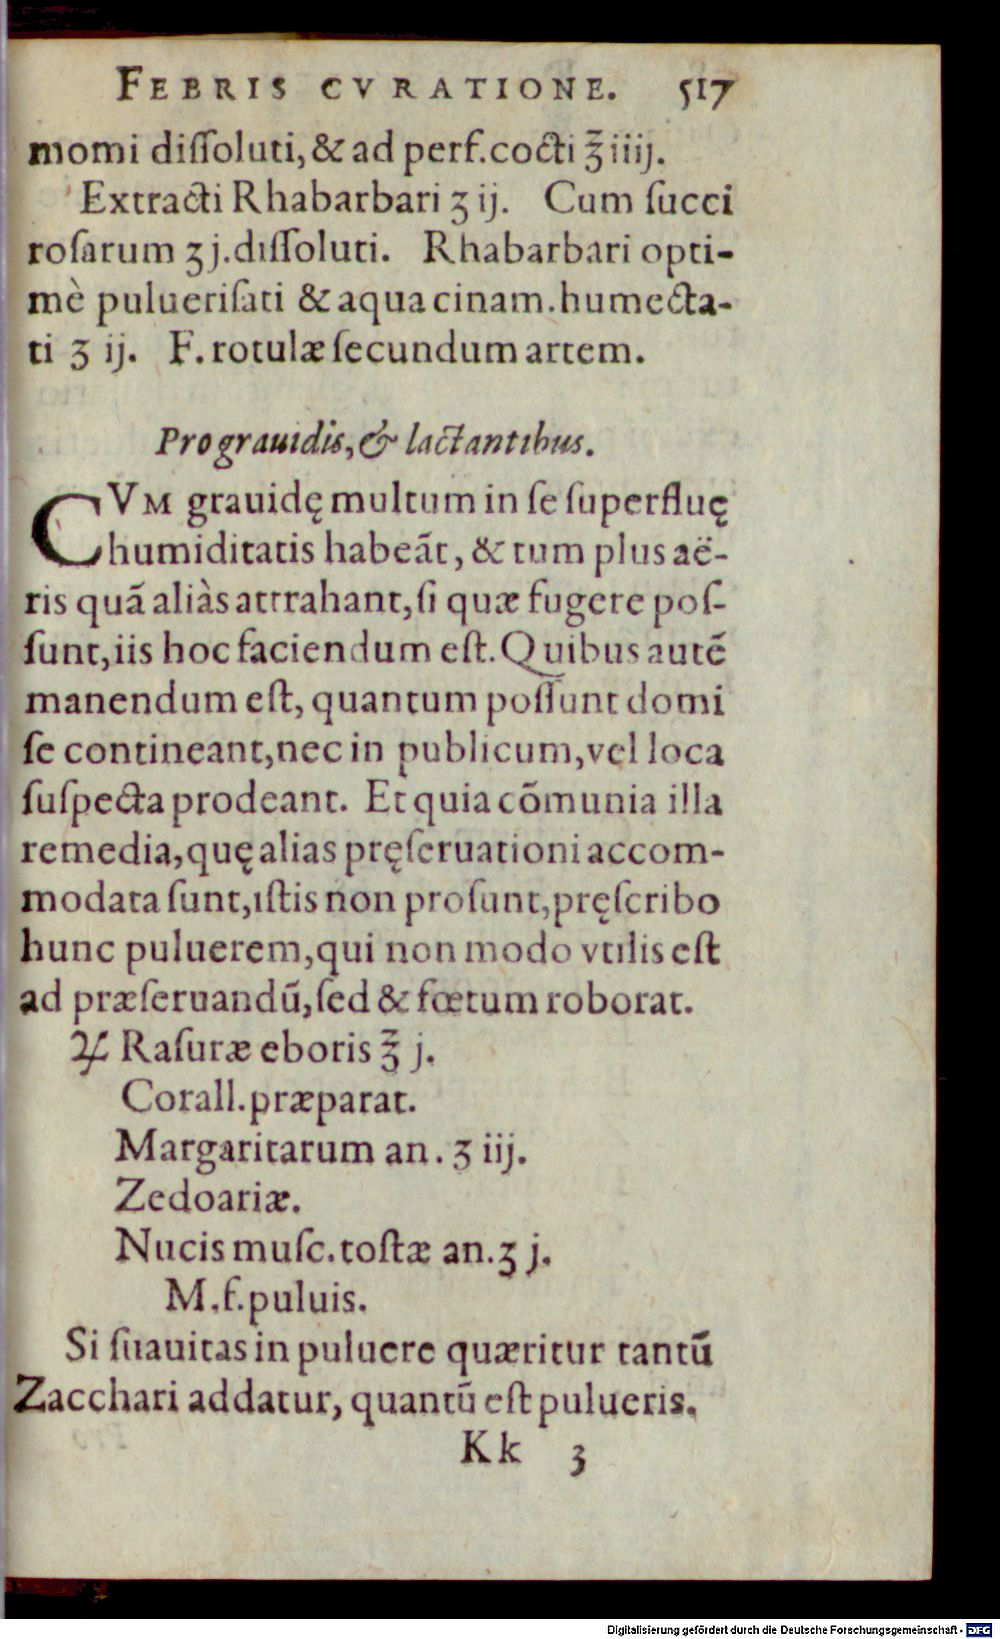 FEBRIS CVRATIONE. 517
momi diſſoluti, & ad perf. cocti ℥ iiij.
Extracti Rhabarbari ʒ ij. Cum ſucci
roſarum ʒ j. diſſoluti. Rhabarbari opti-
mè pulueriſati & aqua cinam. humecta-
ti ʒ ij. F. rotulæ ſecundum artem.
Pro grauidis, & lactantibus.
CVM grauidę multum in ſe ſuperfluę
humiditatis habeāt, & tum plus aë-
ris quā aliàs attrahant, ſi quæ fugere poſ-
ſunt, iis hoc faciendum eſt. Quibus autē
manendum eſt, quantum poſſunt domi
ſe contineant, nec in publicum, vel loca
ſuſpecta prodeant. Et quia cōmunia illa
remedia, quę alias pręſeruationi accom-
modata ſunt, iſtis non proſunt, pręſcribo
hunc puluerem, qui non modo vtilis eſt
ad præſeruandū, ſed & fœtum roborat.
♃ Raſuræ eboris ℥ j.
Corall. præparat.
Margaritarum an. ʒ iij.
Zedoariæ.
Nucis muſc. toſtæ an. ʒ j.
M. f. puluis.
Si ſuauitas in puluere quæritur tantū
Zacchari addatur, quantū eſt pulueris.
Kk 3
Digitalisierung gefördert durch die Deutsche Forschungsgemeinschaft - DFG